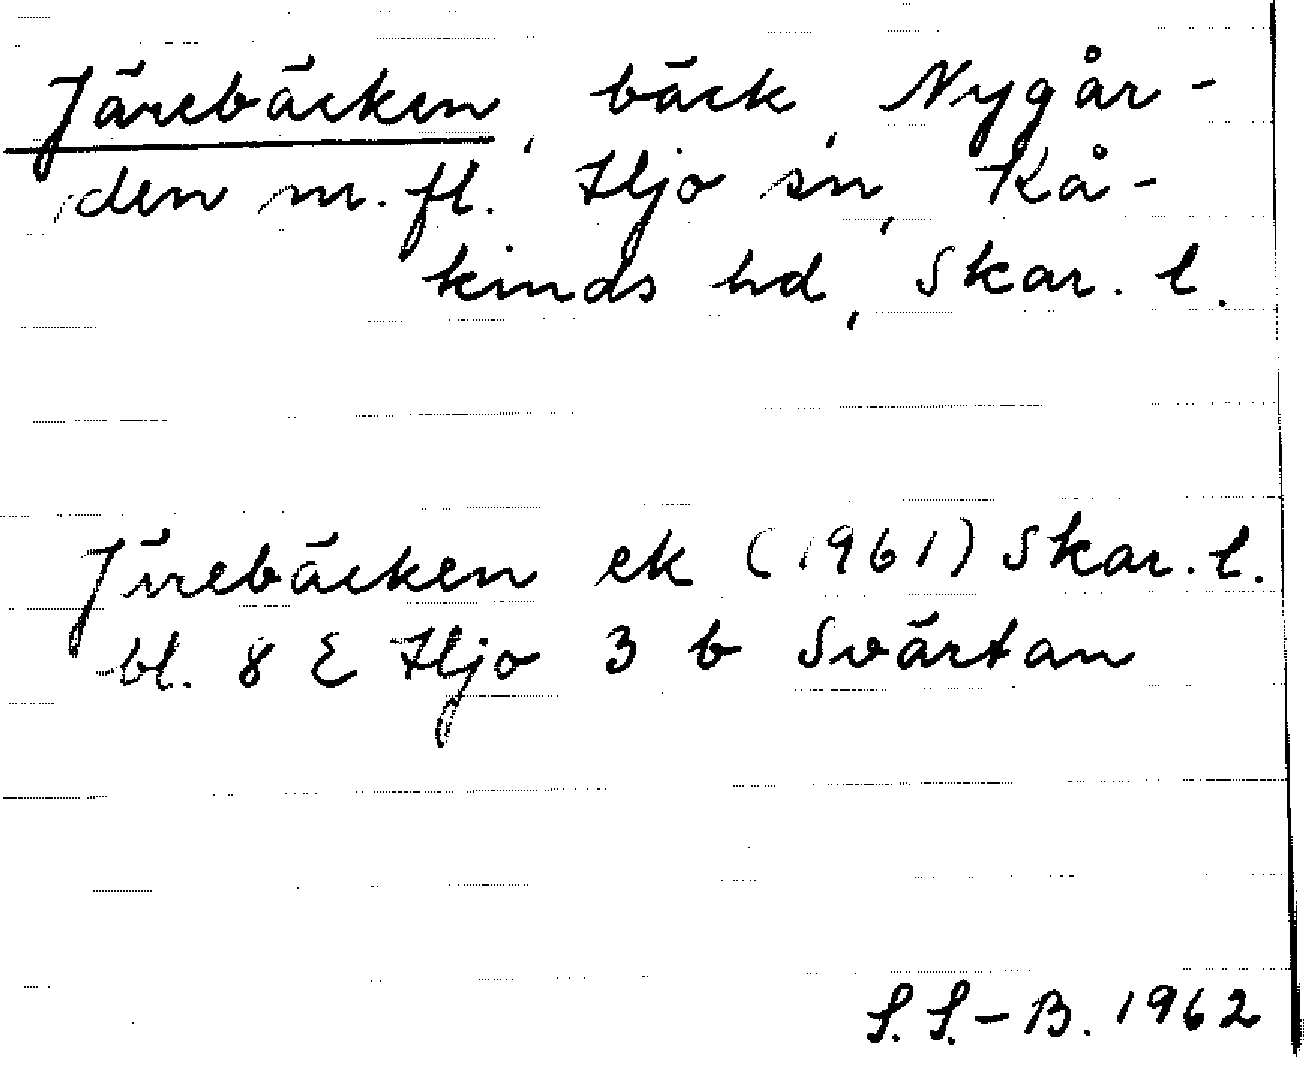 Järebäcken, bäck, Nygår-
den m. fl. Hjo sn, Kå-
kinds hd, Skar. l.
Järebäcken ek (1961) Skar. l.
bl. 8 E Hjo 3 b Svärtan
S. S.-B. 1962